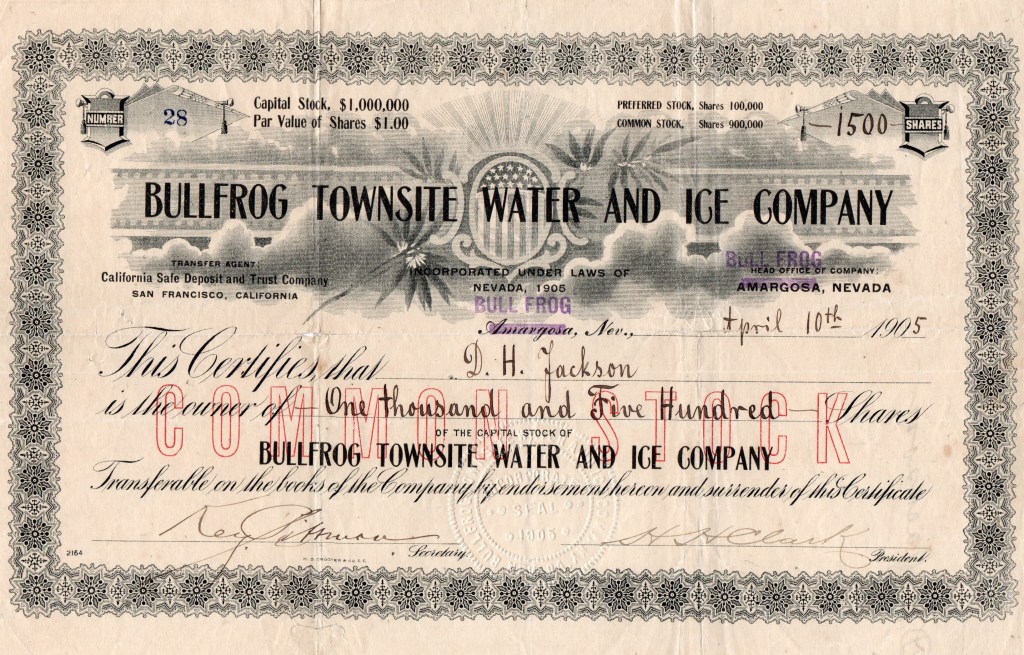 NUMBER
28
Capital Stock, $1,000,000
Par Value of Shares $1.00
PREFERRED STOCK, Shares 100,000
COMMON STOCK, Shares 900,000
—1500
SHARES
BULLFROG TOWNSITE WATER AND ICE COMPANY
TRANSFER AGENT:
California Safe Deposit and Trust Company
SAN FRANCISCO, CALIFORNIA
INCORPORATED UNDER LAWS OF
NEVADA, 1905
BULL FROG
HEAD OFFICE OF COMPANY:
AMARGOSA, NEVADA
BULL FROG
Amargosa, Nev., April 10th 1905
This Certifies that D. H. Jackson
is the owner of One thousand and Five Hundred Shares
COMMON STOCK
OF THE CAPITAL STOCK OF
BULLFROG TOWNSITE WATER AND ICE COMPANY
Transferable on the books of the Company by endorsement hereon and surrender of this Certificate
SEAL
1905
Key Pittman Secretary.
H H Clark President.
2164